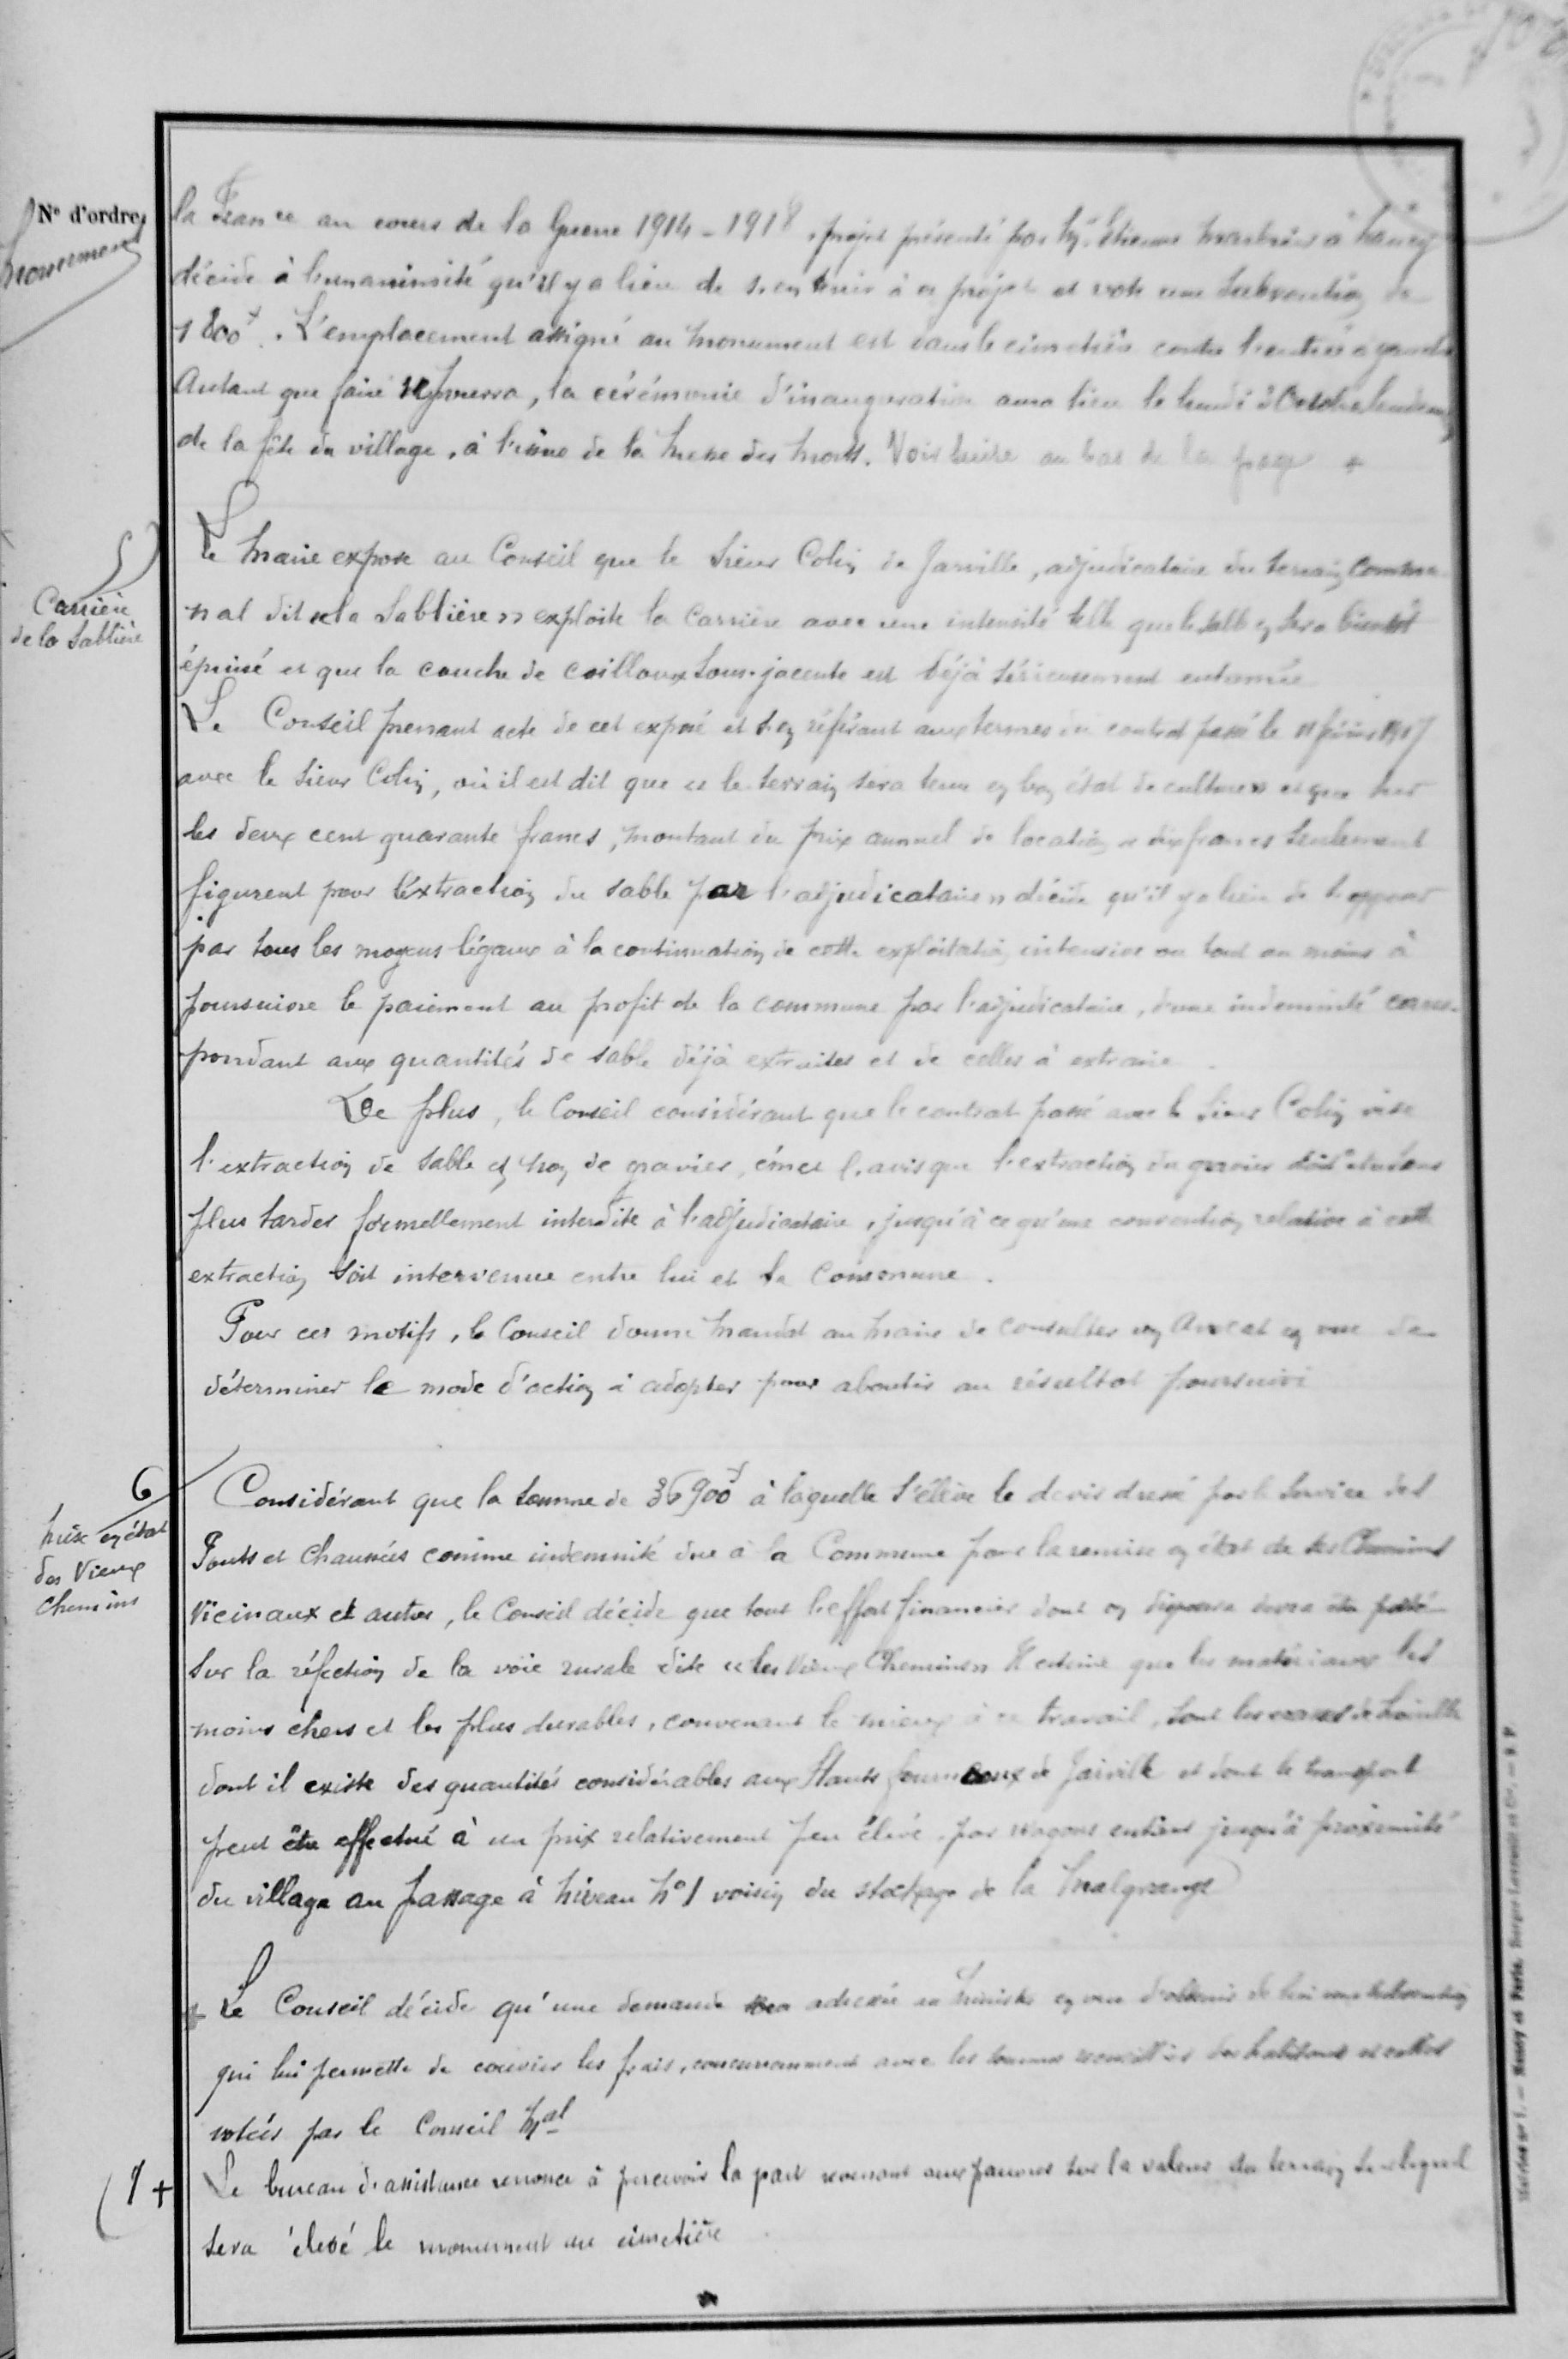 N° d'ordre
Monument
la France au cours de la Guerre 1914-1918, projet présenté par Mr Etienne marbrier à Nancy
décide à l'unaminité qu'il y a lieu de s'en tenir à ce projet et vote une subvention de
1800f. L'emplacement assigné au monument est dans le cimetière contre l'entrée à gauche
Autant que faire se pourra, la cérémonie d'inauguration aura lieu le lundi 2 Octobre lendemain
de la fête du village, à l'issue de la messe des morts. Voir suite au bas de la page +
5
Carrière
de la Sablière
Le Maire expose au Conseil que le sieur Colin de Jarville, adjudicataire du terrain commu-
nal dit « la Sablière » exploite la carrière avec une intensité telle que le sable en sera bientôt
épuisé et que la couche de cailloux sous-jacente est déjà sérieusement entamée
Le Conseil prenant acte de cet exposé et s'en référant aux termes du contrat passé le 11 février
avec le sieur Colin, où il est dit que « le terrain sera tenu en bon état de culture » et que sur
les deux cent quarante francs, montant du prix annuel de location « dix francs seulement
figurent pour l'extraction du sable par l'adjudicataire » décide qu'il y a lieu de s'opposer
par tous les moyens légaux à la continuation de cette exploitation intensive ou tout au moins à
poursuivre le paiement au profit de la commune par l'adjudicataire, d'une indemnité corres-
pondant aux quantités de sable déjà extraites et de celles à extraire.
De plus, le Conseil considérant que le contrat passé avec le sieur Colin vise
l'extraction de sable et non de gravier, émet l'avis que l'extraction du gravier soit sans
plus tarder formellement interdite à l'adjudicataire, jusqu'à ce qu'une convention relative à cette
extraction soit intervenue entre lui et la Commune.
Pour ces motifs, le Conseil donne mandat au maire de consulter un Avocat en vue de
déterminer le mode d'action à adopter pour aboutir au résultat poursuivi
6
Mise en état
des Vieux
Chemins
Considérant que la somme de 36900f à laquelle s'élève le devis dressé par le Service des
Ponts et Chaussées comme indemnité due à la Commune pour la remise en état de ses Chemins
Vicinaux et autres, le Conseil décide que tout l'effort financier dont on disposera devra être porté
sur la réfection de la voie rurale dite « les Vieux Chemins » Il estime que les matériaux les
moins chers et les plus durables, convenant le mieux à ce travail, sont les crasses de houille
dont il existe des quantités considérables aux Hauts fourneaux de Jarville et dont le transport
peut être effectué à un prix relativement peu élevé, par wagons entiers jusqu'à proximité
du village au passage à niveau No 1 voisin du stockage de la Malgrange
+ Le Conseil décide qu'une demande sera adressée au Ministre en vue d'obtenir de lui une subvention
qui lui permette de couvrir les frais, concurremment avec les sommes recueillies des habitants et celles
votées par le Conseil Mal
(1 + Le bureau d'assistance renonce à percevoir la part revenant aux pauvres sur la valeur du terrain sur lequel
sera élevé le monument au cimetière